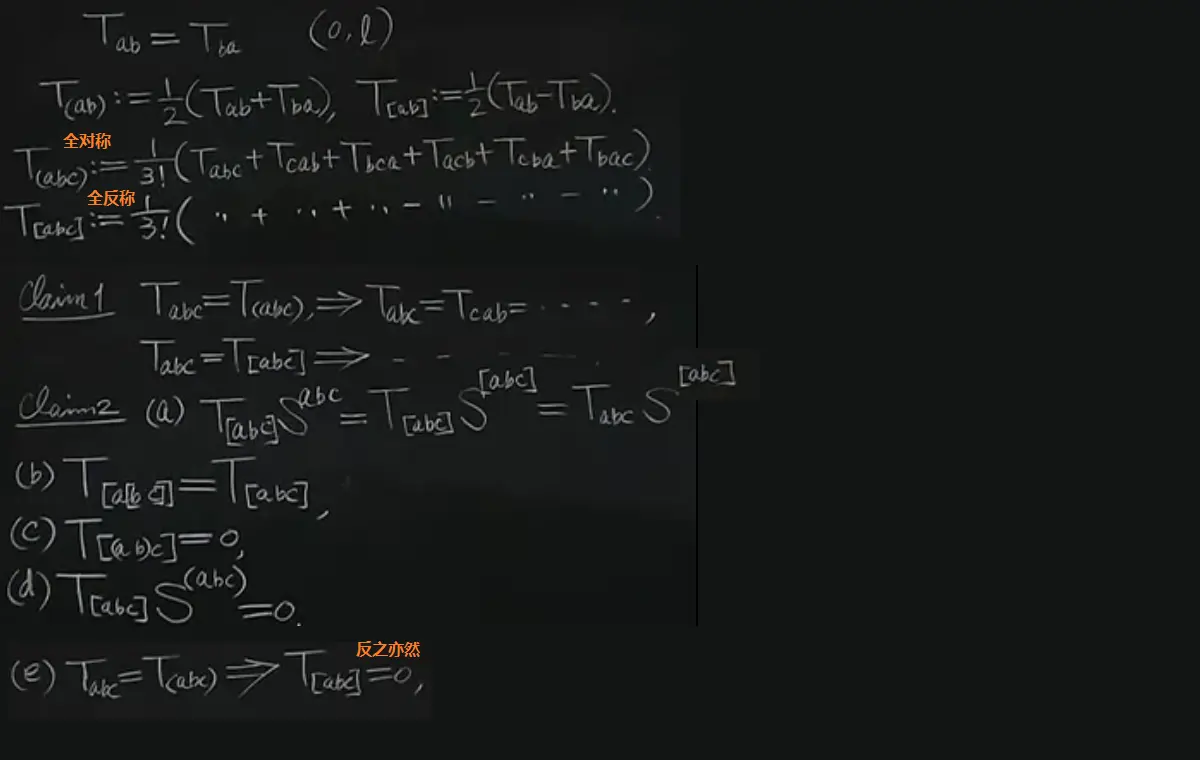 T_{ab} = T_{ba} (0, l)
T_{(ab)} := 1/2 (T_{ab} + T_{ba}), T_{[ab]} := 1/2 (T_{ab} - T_{ba}).
全对称
T_{(abc)} := 1/3! (T_{abc} + T_{cab} + T_{bca} + T_{acb} + T_{cba} + T_{bac}).
全反称
T_{[abc]} := 1/3! ( " + " + " - " - " - " ).
Claim 1 T_{abc} = T_{(abc)}, ⇒ T_{abc} = T_{cab} = · · · · · ,
T_{abc} = T_{[abc]} ⇒ - - - - - .
Claim 2 (a) T_{[abc]} S^{abc} = T_{[abc]} S^{[abc]} = T_{abc} S^{[abc]}
(b) T_{[a[bc]]} = T_{[abc]},
(c) T_{[(ab)c]} = 0,
(d) T_{[abc]} S^{(abc)} = 0.
反之亦然
(e) T_{abc} = T_{(abc)} ⇒ T_{[abc]} = 0,